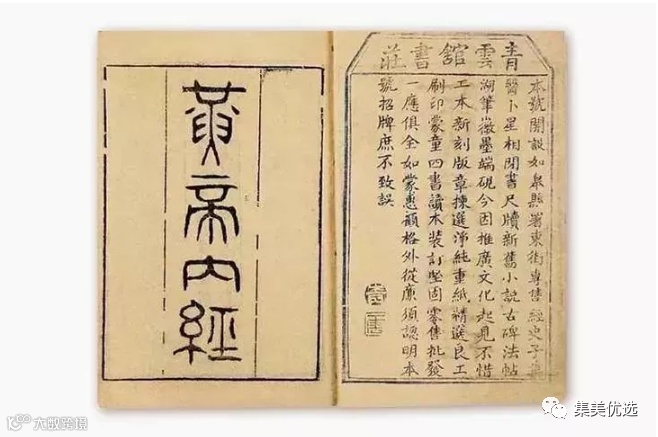 青雲舘書莊
本號開設如皋縣署東街專售經史子集
醫卜星相閒書尺牘新舊小説古碑法帖
湖筆徽墨端硯今因推廣文化起見不惜
工本新刻版章揀選淨純重紙精選良工
刷印蒙童四書讀本裝訂堅固零售批發
一應俱全如蒙惠顧格外從廉須認明本
號招牌庶不致誤
黃帝內經
大数跨境
集美优选